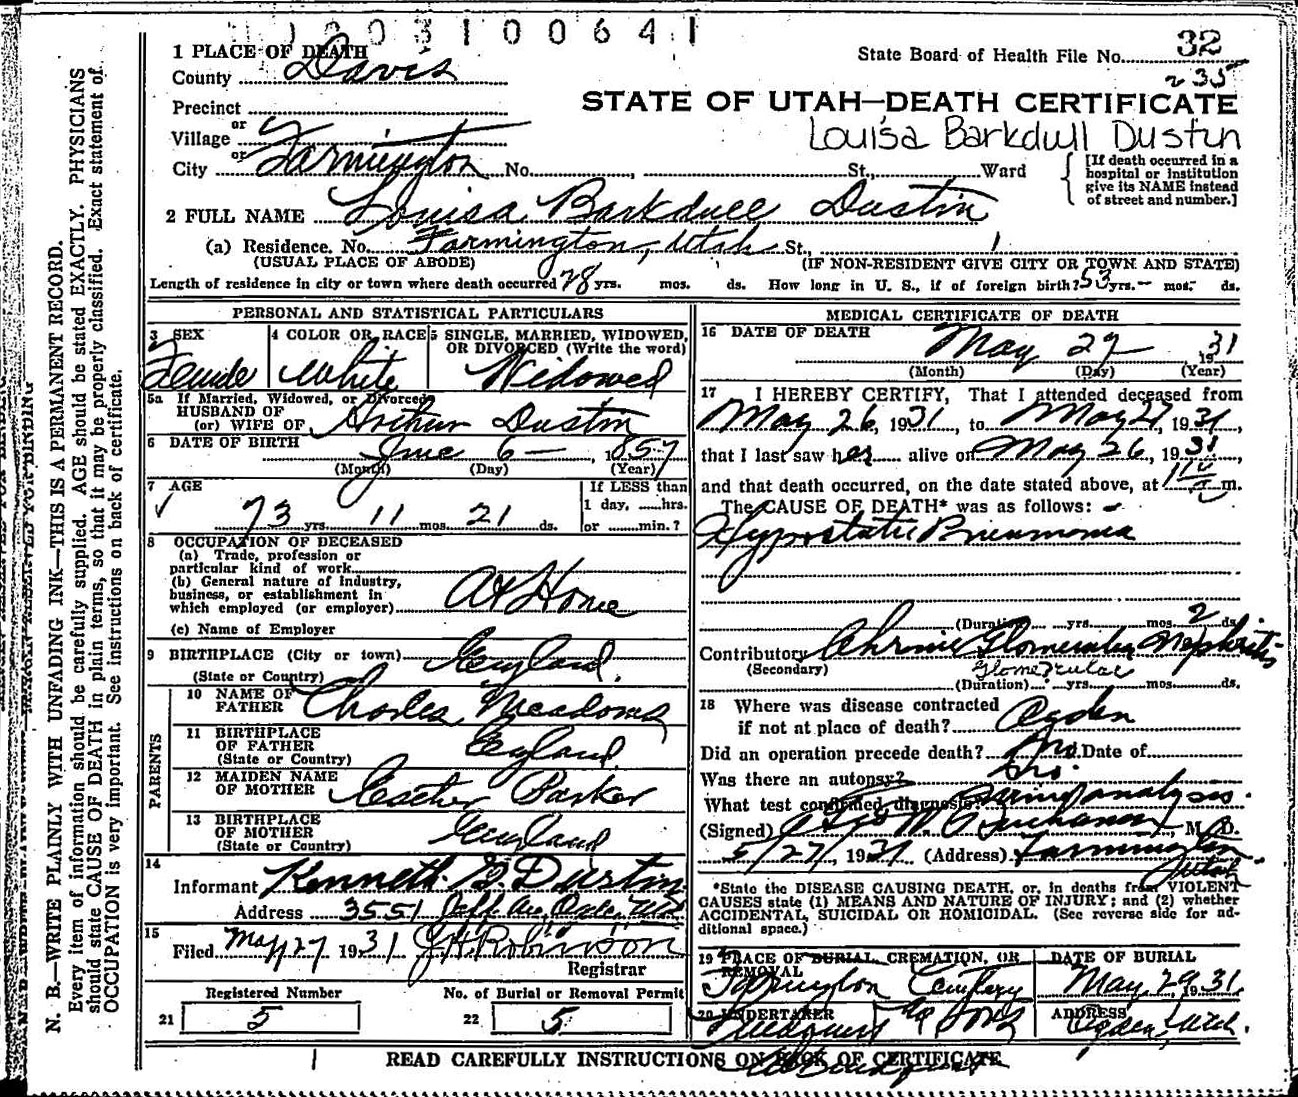 1 2 0 3 1 0 0 6 4 1
1 PLACE OF DEATH
County Davis
Precinct
or
Village
or
City Farmington No. , St., Ward
State Board of Health File No. 32
235
STATE OF UTAH—DEATH CERTIFICATE
Louisa Barkdull Dustin
[If death occurred in a
hospital or institution
give its NAME instead
of street and number.]
2 FULL NAME Louisa Barkdull Dustin
(a) Residence. No. Farmington, Utah St.,
(USUAL PLACE OF ABODE) (IF NON-RESIDENT GIVE CITY OR TOWN AND STATE)
Length of residence in city or town where death occurred 28 yrs. mos. ds. How long in U. S., if of foreign birth? 53 yrs. — mos. ds.
PERSONAL AND STATISTICAL PARTICULARS
3 SEX
Female
4 COLOR OR RACE
White
5 SINGLE, MARRIED, WIDOWED,
OR DIVORCED (Write the word)
Widowed
5a If Married, Widowed, or Divorced
HUSBAND OF
(or) WIFE OF Arthur Dustin
6 DATE OF BIRTH June 6 — , 1857
(Month) (Day) (Year)
7 AGE
73 yrs. 11 mos. 21 ds.
If LESS than
1 day, hrs.
or min.?
8 OCCUPATION OF DECEASED
(a) Trade, profession or
particular kind of work
(b) General nature of industry,
business, or establishment in
which employed (or employer) At Home
(c) Name of Employer
9 BIRTHPLACE (City or town) England.
(State or Country)
PARENTS
10 NAME OF
FATHER Charles Meadows
11 BIRTHPLACE
OF FATHER England.
(State or Country)
12 MAIDEN NAME
OF MOTHER Esther Parker
13 BIRTHPLACE
OF MOTHER England
(State or Country)
14
Informant Kenneth G. Dustin
Address 3551 Jeff. Av, Ogden, Utah
15
Filed May 27 1931 J. H. Robinson
Registrar
Registered Number
21 5
No. of Burial or Removal Permit
22 5
MEDICAL CERTIFICATE OF DEATH
16 DATE OF DEATH
May 27 1931
(Month) (Day) (Year)
17 I HEREBY CERTIFY, That I attended deceased from
May 26, 1931, to May 27, 1931,
that I last saw her alive on May 26, 1931,
and that death occurred, on the date stated above, at m.
The CAUSE OF DEATH* was as follows:
Hypostatic Pneumonia
(Duration) yrs. mos. 2 ds.
Contributory Chronic Glomerular Nephritis
(Secondary) Glomerular
(Duration) yrs. mos. ds.
18 Where was disease contracted
if not at place of death? Ogden
Did an operation precede death? No. Date of
Was there an autopsy? No.
What test confirmed diagnosis? Urine analysis.
(Signed) Geo W. Buchanan, M. D.
5/27/, 1931 (Address) Farmington
Utah
*State the DISEASE CAUSING DEATH, or, in deaths from VIOLENT
CAUSES state (1) MEANS AND NATURE OF INJURY; and (2) whether
ACCIDENTAL, SUICIDAL OR HOMICIDAL. (See reverse side for ad-
ditional space.)
19 PLACE OF BURIAL, CREMATION, OR
REMOVAL
Farmington Cemetery
DATE OF BURIAL
May, 29 1931.
20 UNDERTAKER
Lindquist & Sons
ADDRESS
Ogden, Utah.
READ CAREFULLY INSTRUCTIONS ON BACK OF CERTIFICATE
N. B.—WRITE PLAINLY WITH UNFADING INK—THIS IS A PERMANENT RECORD.
Every item of information should be carefully supplied. AGE should be stated EXACTLY. PHYSICIANS
should state CAUSE OF DEATH in plain terms, so that it may be properly classified. Exact statement of
OCCUPATION is very important. See instructions on back of certificate.